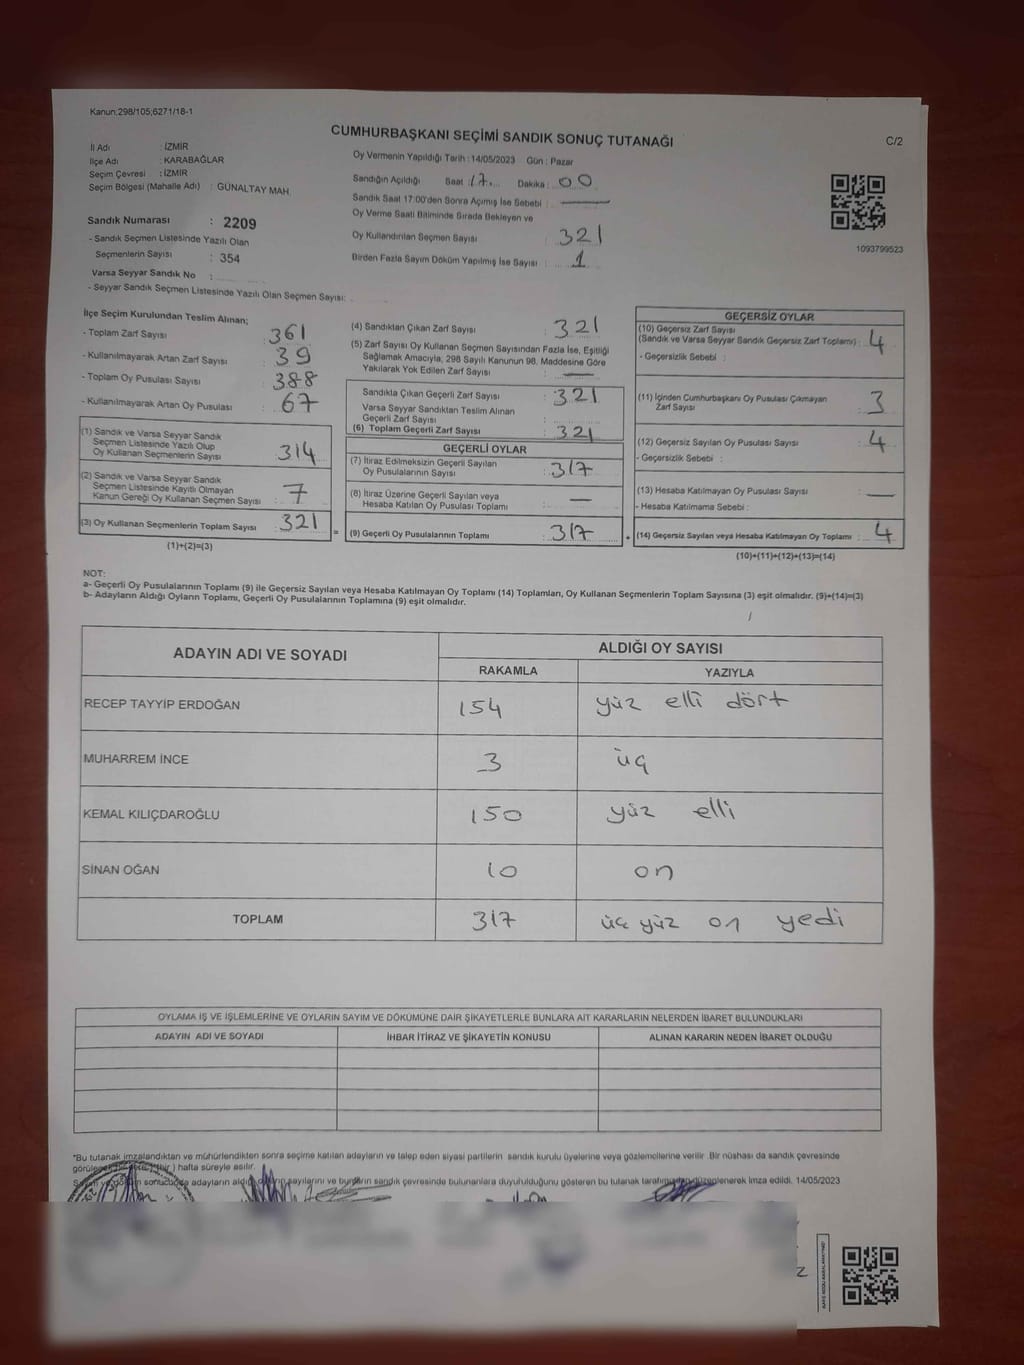 Kanun;298/105;6271/18-1
CUMHURBAŞKANI SEÇİMİ SANDIK SONUÇ TUTANAĞI
C/2
İl Adı : İZMİR
İlçe Adı : KARABAĞLAR
Seçim Çevresi : İZMİR
Seçim Bölgesi (Mahalle Adı) : GÜNALTAY MAH.
Sandık Numarası : 2209
- Sandık Seçmen Listesinde Yazılı Olan
Seçmenlerin Sayısı : 354
Varsa Seyyar Sandık No :
- Seyyar Sandık Seçmen Listesinde Yazılı Olan Seçmen Sayısı:
Oy Vermenin Yapıldığı Tarih : 14/05/2023 Gün : Pazar
Sandığın Açıldığı Saat 17... Dakika : 00
Sandık Saat 17:00'den Sonra Açımış İse Sebebi : —
Oy Verme Saati Bitiminde Sırada Bekleyen ve
Oy Kullandırılan Seçmen Sayısı : 321
Birden Fazla Sayım Döküm Yapılmış İse Sayısı : 1
1093799523
İlçe Seçim Kurulundan Teslim Alınan;
- Toplam Zarf Sayısı : 361
- Kullanılmayarak Artan Zarf Sayısı : 39
- Toplam Oy Pusulası Sayısı : 388
- Kullanılmayarak Artan Oy Pusulası : 67
(1) Sandık ve Varsa Seyyar Sandık
Seçmen Listesinde Yazılı Olup
Oy Kullanan Seçmenlerin Sayısı : 314
(2) Sandık ve Varsa Seyyar Sandık
Seçmen Listesinde Kayıtlı Olmayan
Kanun Gereği Oy Kullanan Seçmen Sayısı : 7
(3) Oy Kullanan Seçmenlerin Toplam Sayısı : 321
(1)+(2)=(3)
=
(4) Sandıktan Çıkan Zarf Sayısı : 321
(5) Zarf Sayısı Oy Kullanan Seçmen Sayısından Fazla İse, Eşitliği
Sağlamak Amacıyla, 298 Sayılı Kanunun 98. Maddesine Göre
Yakılarak Yok Edilen Zarf Sayısı : —
Sandıkta Çıkan Geçerli Zarf Sayısı : 321
Varsa Seyyar Sandıktan Teslim Alınan
Geçerli Zarf Sayısı :
(6) Toplam Geçerli Zarf Sayısı : 321
GEÇERLİ OYLAR
(7) İtiraz Edilmeksizin Geçerli Sayılan
Oy Pusulalarının Sayısı : 317
(8) İtiraz Üzerine Geçerli Sayılan veya
Hesaba Katılan Oy Pusulası Toplamı : —
(9) Geçerli Oy Pusulalarının Toplamı : 317
+
GEÇERSİZ OYLAR
(10) Geçersiz Zarf Sayısı
(Sandık ve Varsa Seyyar Sandık Geçersiz Zarf Toplamı) : 4
- Geçersizlik Sebebi :
(11) İçinden Cumhurbaşkanı Oy Pusulası Çıkmayan
Zarf Sayısı : 3
(12) Geçersiz Sayılan Oy Pusulası Sayısı : 4
- Geçersizlik Sebebi :
(13) Hesaba Katılmayan Oy Pusulası Sayısı : —
- Hesaba Katılmama Sebebi :
(14) Geçersiz Sayılan veya Hesaba Katılmayan Oy Toplamı : 4
(10)+(11)+(12)+(13)=(14)
NOT:
a- Geçerli Oy Pusulalarının Toplamı (9) ile Geçersiz Sayılan veya Hesaba Katılmayan Oy Toplamı (14) Toplamları, Oy Kullanan Seçmenlerin Toplam Sayısına (3) eşit olmalıdır. (9)+(14)=(3)
b- Adayların Aldığı Oyların Toplamı, Geçerli Oy Pusulalarının Toplamına (9) eşit olmalıdır.
ADAYIN ADI VE SOYADI ALDIĞI OY SAYISI
RAKAMLA YAZIYLA
RECEP TAYYİP ERDOĞAN 154 yüz elli dört
MUHARREM İNCE 3 üç
KEMAL KILIÇDAROĞLU 150 yüz elli
SİNAN OĞAN 10 on
TOPLAM 317 üç yüz on yedi
OYLAMA İŞ VE İŞLEMLERİNE VE OYLARIN SAYIM VE DÖKÜMÜNE DAİR ŞİKAYETLERLE BUNLARA AİT KARARLARIN NELERDEN İBARET BULUNDUKLARI
ADAYIN ADI VE SOYADI İHBAR İTİRAZ VE ŞİKAYETİN KONUSU ALINAN KARARIN NEDEN İBARET OLDUĞU
*Bu tutanak imzalandıktan ve mühürlendikten sonra seçime katılan adayların ve talep eden siyasi partilerin sandık kurulu üyelerine veya gözlemcilerine verilir. Bir nüshası da sandık çevresinde
hafta süreyle asılır.
sonucunda adayların aldığı oyların sayılarını ve bunların sandık çevresinde bulunanlara duyurulduğunu gösteren bu tutanak tarafımızdan düzenlenerek imza edildi. 14/05/2023